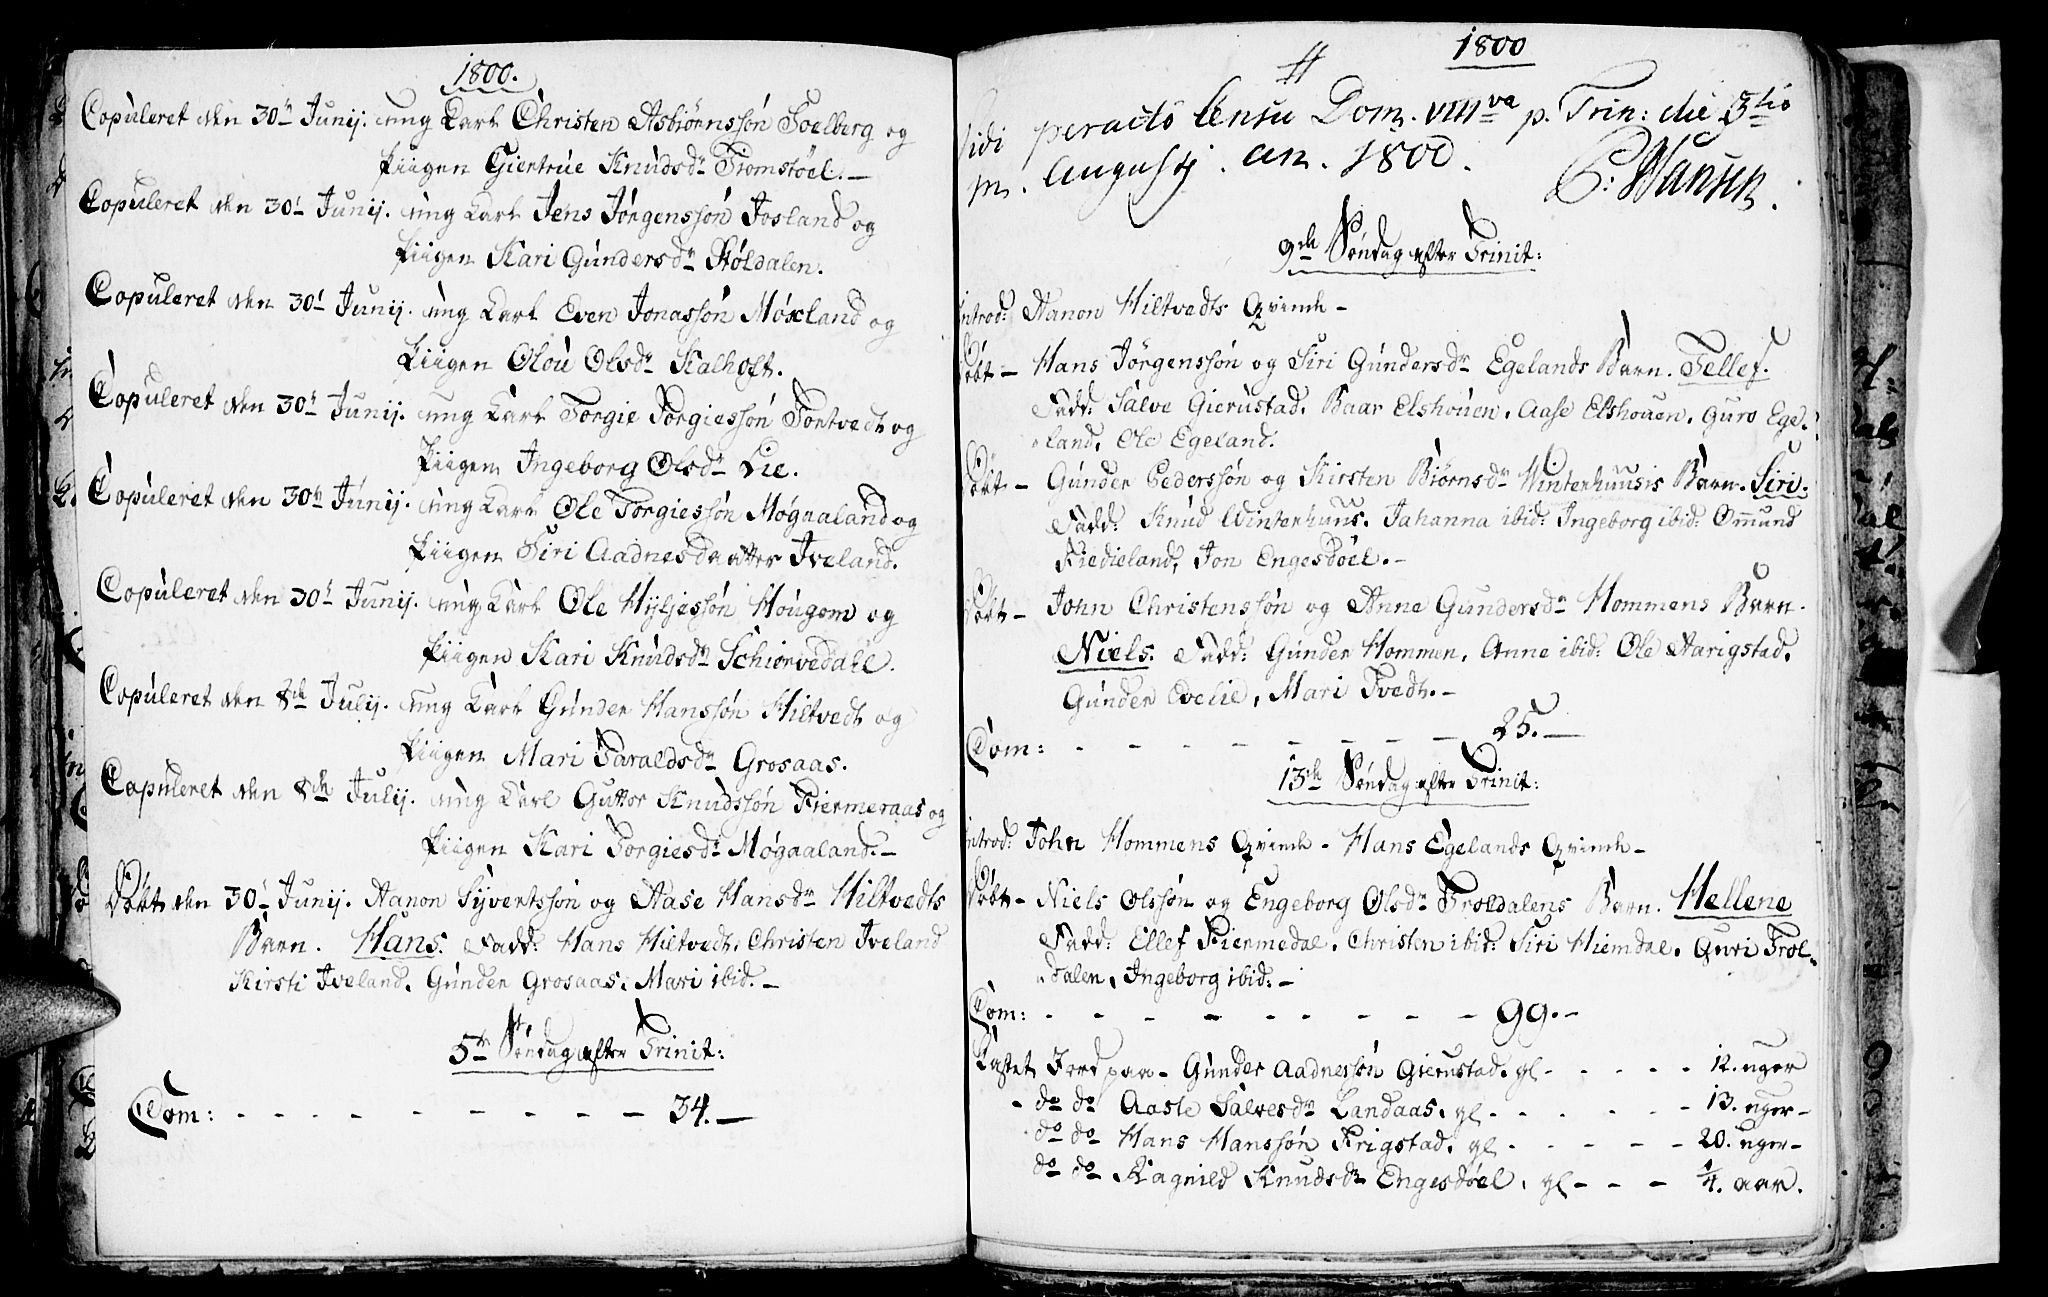 1800.
Copuleret den 30te Junij. ung Karl Christen Asbiörnssön Soelberg og
Piigen Giertrüe Knüdsdr Tromstöel. —
Copuleret den 30t Junij. ung Karl Jens Jörgenssön Josland og
Piigen Kari Gündersdr Stöldalen.
Copuleret den 30t Junij. ung Karl Even Jonassön Möxland og
Piigen Oloü Olsdr Kalhoft.
Copuleret den 30te Junij. ung Karl Torgie Torgiessön Tontvedt og
Piigen Ingeborg Olsdr Lie.
Copuleret den 30te Junij. ung Karl Ole Torgiessön Mögaaland og
Piigen Siri Aadnesdaatter Iveland.
Copuleret den 30t Junij. ung Karl Ole Hyljessön Hougom og
Piigen Kari Knüdsdr Schiorvedall.
Copuleret den 8de Julij. ung Karl Günder Hanssön Hiltvedt og
Piigen Mari Taraldsdr Grosaas.
Copuleret den 8de Julij. ung Karl Guttor Knüdssön Fiermeraas og
Piigen Kari Torgiesdr Mögaaland. —
Döbt den 30t Junij. Aanon Syvertssön og Aase Hansdr Hiltvedts
Barn. Hans. Fadd: Hans Hiltvedt. Christen Iveland
Kirsti Iveland. Günder Grosaas. Mari ibid. —
5te Söndag efter Trinit:
Com: - - - - - - - - 34. —
1800
Vidi peracto Censu Dom. VIIIva p. Trin: die 3tio
m. Augustj. an. 1800. C: Hansen.
9de Söndag efter Trinit:
Introd: Aanon Hiltvedts Qvinde —
Döbt — Hans Jörgenssön og Siri Gündersdr Egelands Barn. Tellef.
Fadd: Salve Gierustad. Baar Elshouen. Aase Elshouen. Guro Ege-
land. Ole Egeland.
Döbt — Günder Pederssön og Kirsten Biörnsdr Winterhuusis Barn. Siri.
Fadd: Knud Winterhuus. Johanna ibid: Ingeborg ibid: Omund
Fiedieland, Jon Engesdöel. —
Döbt — John Christenssön og Anne Gundersdr Hommens Barn.
Niels. Fadd: Günder Hommen. Anne ibid: Ole Aarigstad.
Günder Evelie, Mari Tvedt. —
Com: - - - - - - - - 25. —
13de Söndag efter Trinit:
Introd: John Hommens Qvinde — Hans Egelands Qvinde —
Döbt — Niels Olssön og Engeborg Olsdr Troldalens Barn. Hellene
Fadd: Ellef Fiermedal. Christen ibid: Siri Hiemdal. Guri Trol-
dalen, Ingeborg ibid: —
Com: - - - - - - - - 99. —
Kastet Jord paa — Günder Aadnessön Gierustad. gl - - - - - 12. uger
do do Aasle Salvesdr Landaas. gl - - - - - 13. uger —
do do Hans Hanssön Frigstad. gl - - - - - 20. uger —
do do Ragnild Knudsdr Engesdöel. gl - - - 1/4. aar.